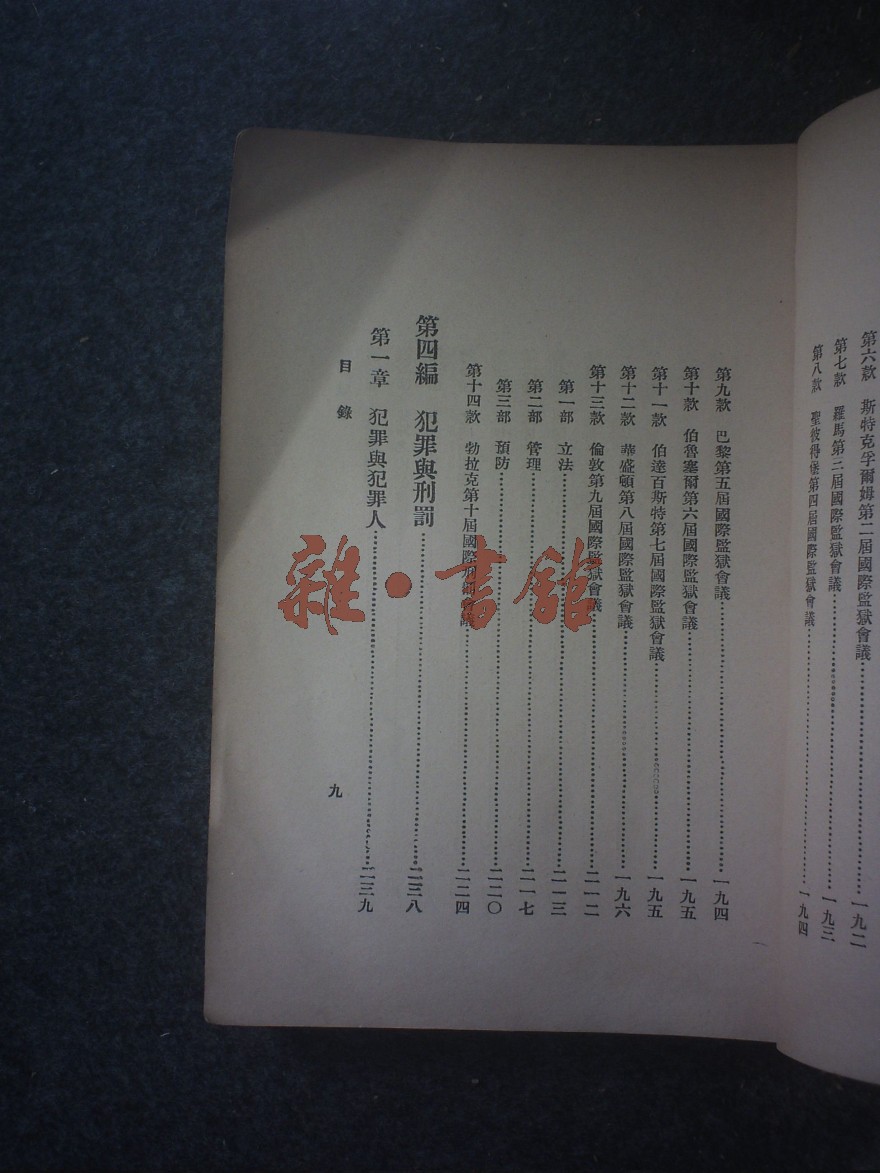 第六款　斯特克孚爾姆第二屆國際監獄會議……一九二
第七款　羅馬第三屆國際監獄會議……一九三
第八款　聖彼得堡第四屆國際監獄會議……一九四
第九款　巴黎第五屆國際監獄會議……一九四
第十款　伯魯塞爾第六屆國際監獄會議……一九五
第十一款　伯達百斯特第七屆國際監獄會議……一九五
第十二款　華盛頓第八屆國際監獄會議……一九六
第十三款　倫敦第九屆國際監獄會議……二一二
第一部　立法……二一三
第二部　管理……二一七
第三部　預防……二二〇
第十四款　勃拉克第十屆國際刑罰會議……二二四
第四編　犯罪與刑罰……二三八
第一章　犯罪與犯罪人……二三九
目錄
九
雜·書館